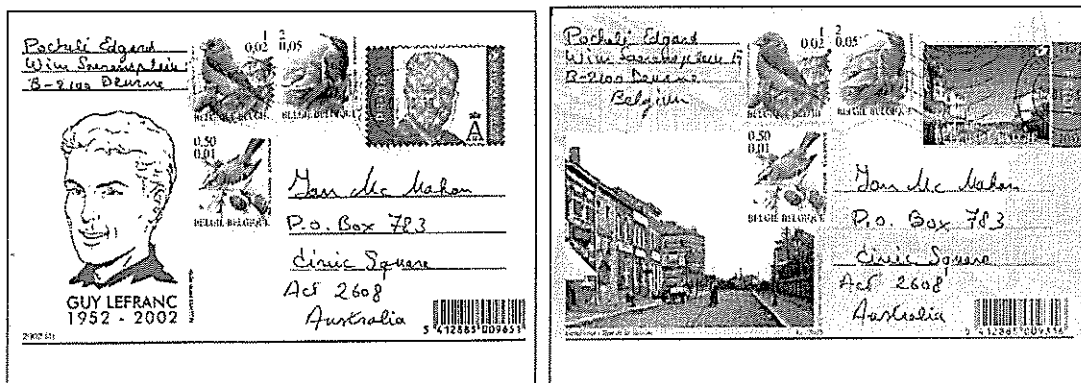 Pochelé Edgard
B-2100 Deurne
1
0,02
2
0,05
BELGIË BELGIQUE
BELGIË BELGIQUE
A
0,50
0,01
BELGIË-BELGIQUE
Mc Mahon
P.O. Box 783
Civic Square
ACT 2608
Australia
GUY LEFRANC
1952 - 2002
5 412885 009651
Pochelé Edgard
B-2100 Deurne
Belgium
1
0,02
2
0,05
BELGIË BELGIQUE
BELGIË BELGIQUE
0,50
0,01
BELGIË BELGIQUE
Mc Mahon
P.O. Box 783
Civic Square
ACT 2608
Australia